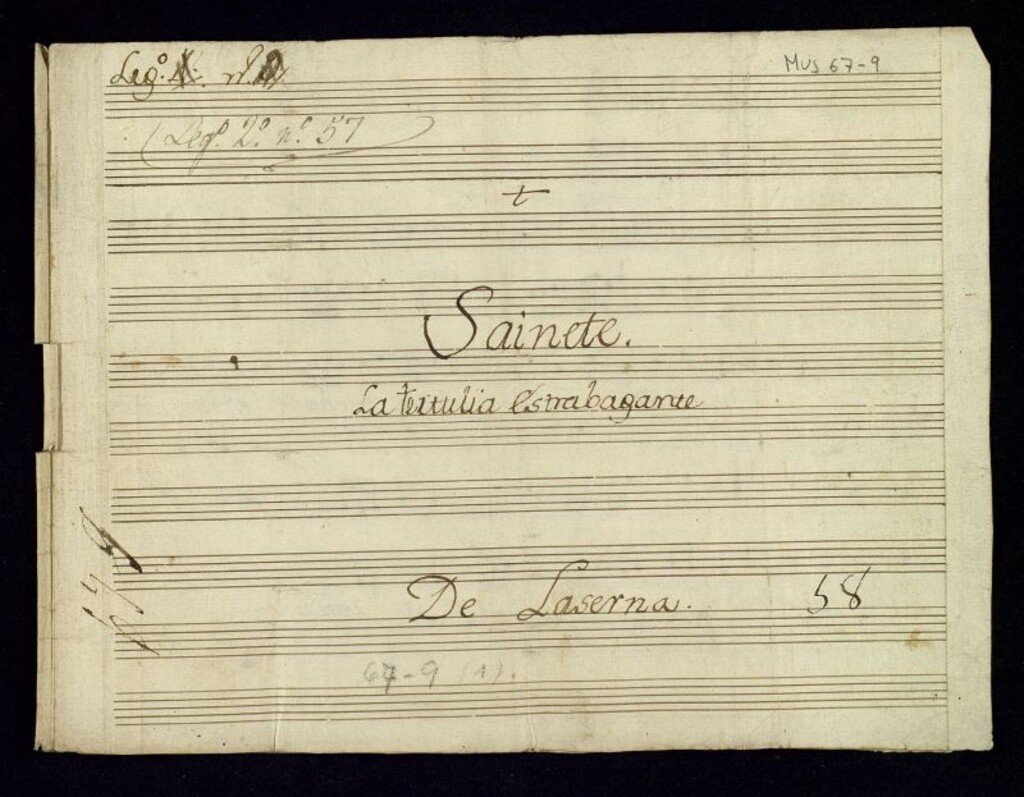 Leg.º nº
Mus 67-9
Leg.º 2.º n.º 57
Sainete.
La tertulia estrabagante
De Laserna.
58
67-9 (1).